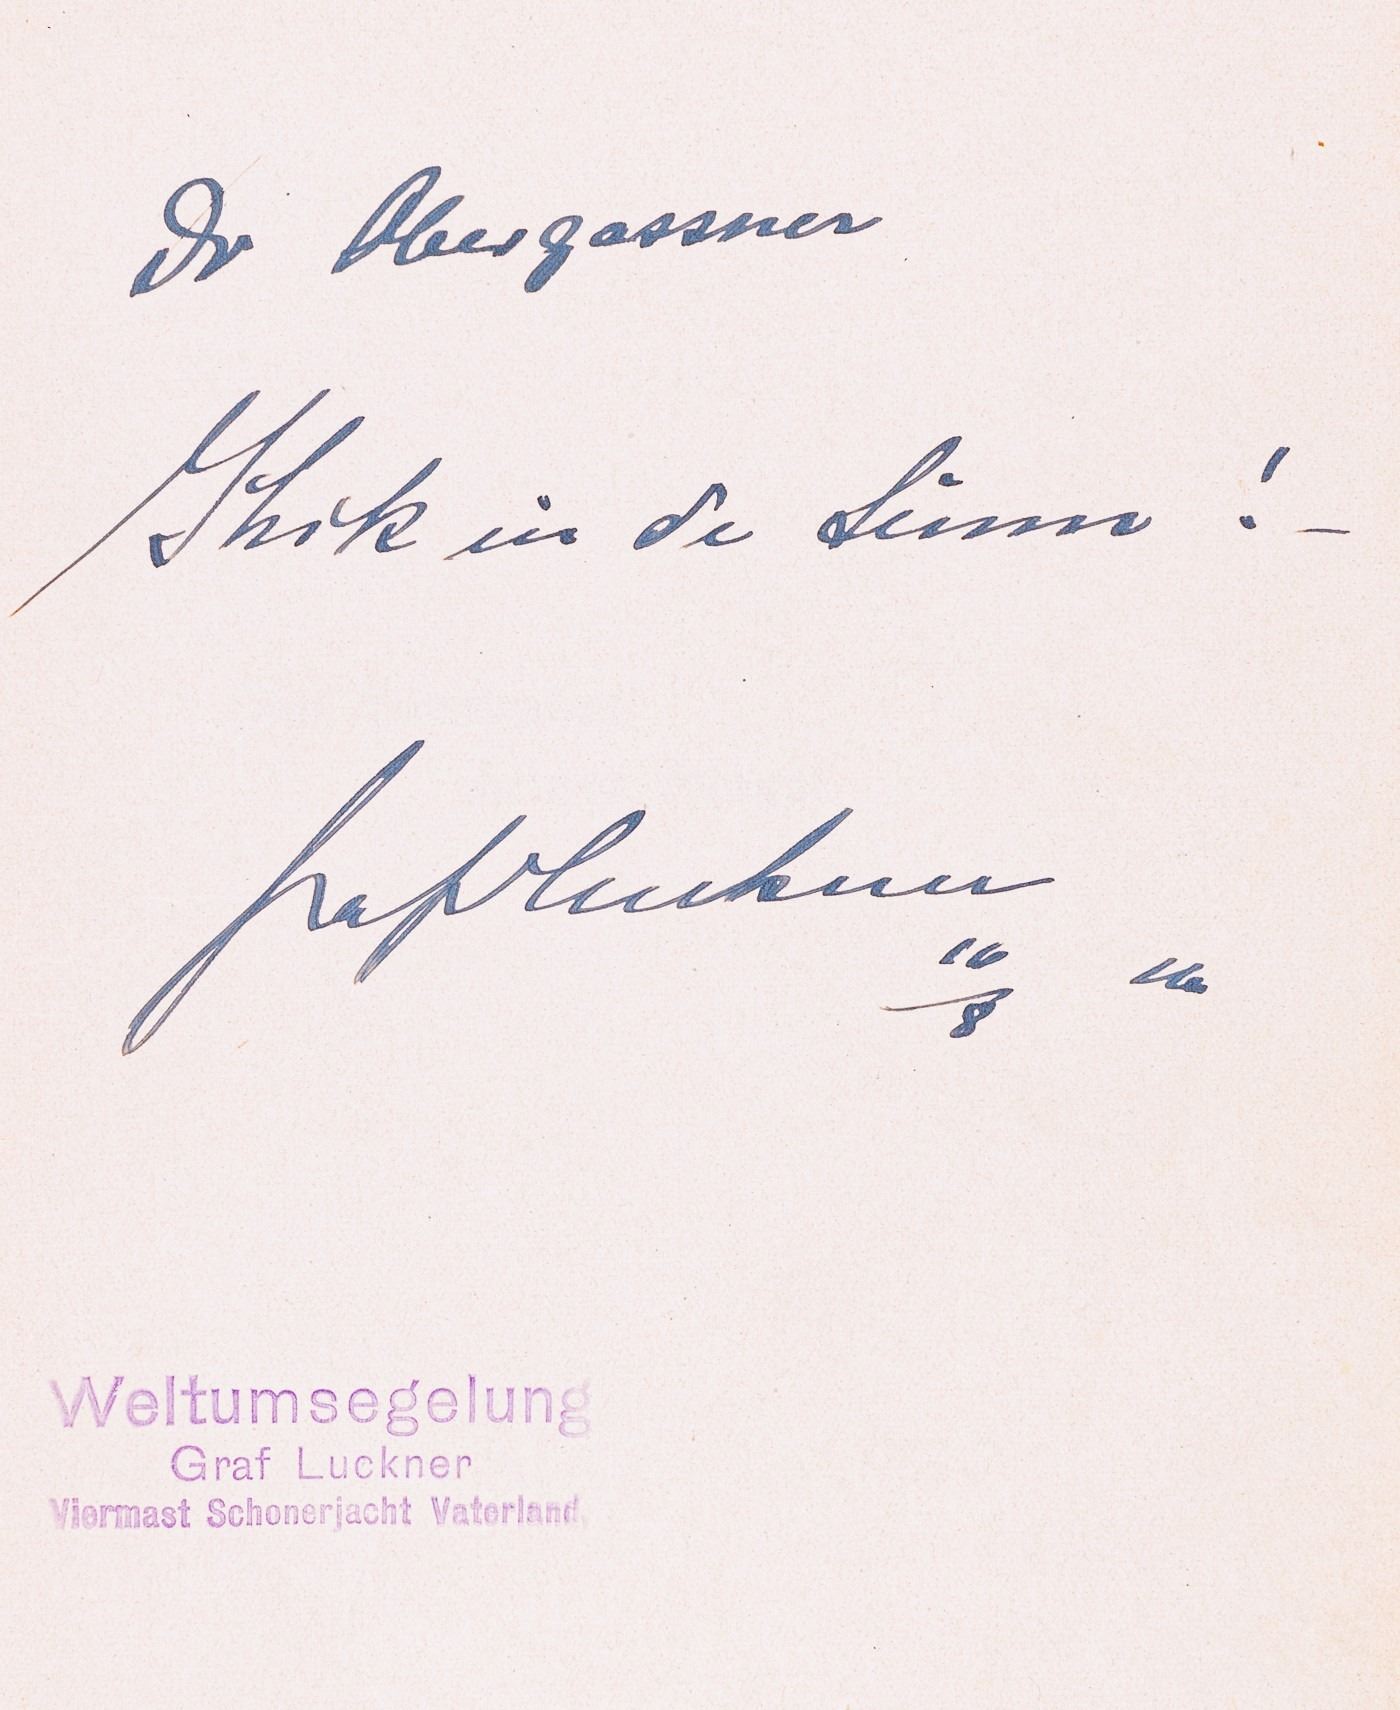 Dr Obergassner
Kiek in de Sünn !–
Graf Luckner
16/8 26
Weltumsegelung
Graf Luckner
Viermast Schonerjacht Vaterland.